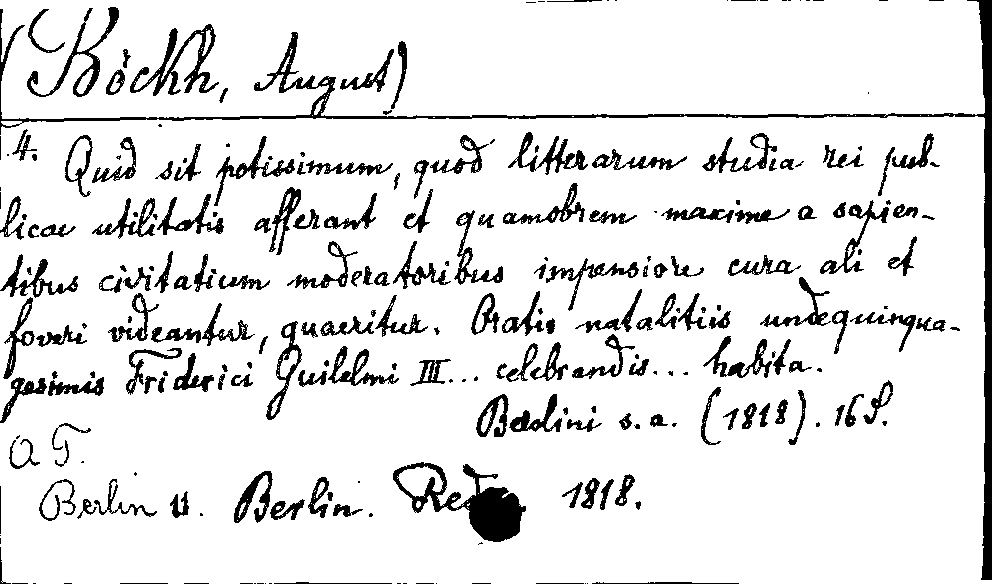 (Böckh, August)
4. Quid sit potissimum, quod litterarum studia rei pub-
licae utilitatis afferant et quamobrem maxime a sapien-
tibus civitatium moderatoribus impensiore cura ali et
foveri videantur, quaeritur. Oratio natalitiis undequinqua-
gesimis Friderici Guilelmi III... celebrandis... habita.
Berolini s. a. (1818). 16 S.
OT.
Berlin U. Berlin. 1818.